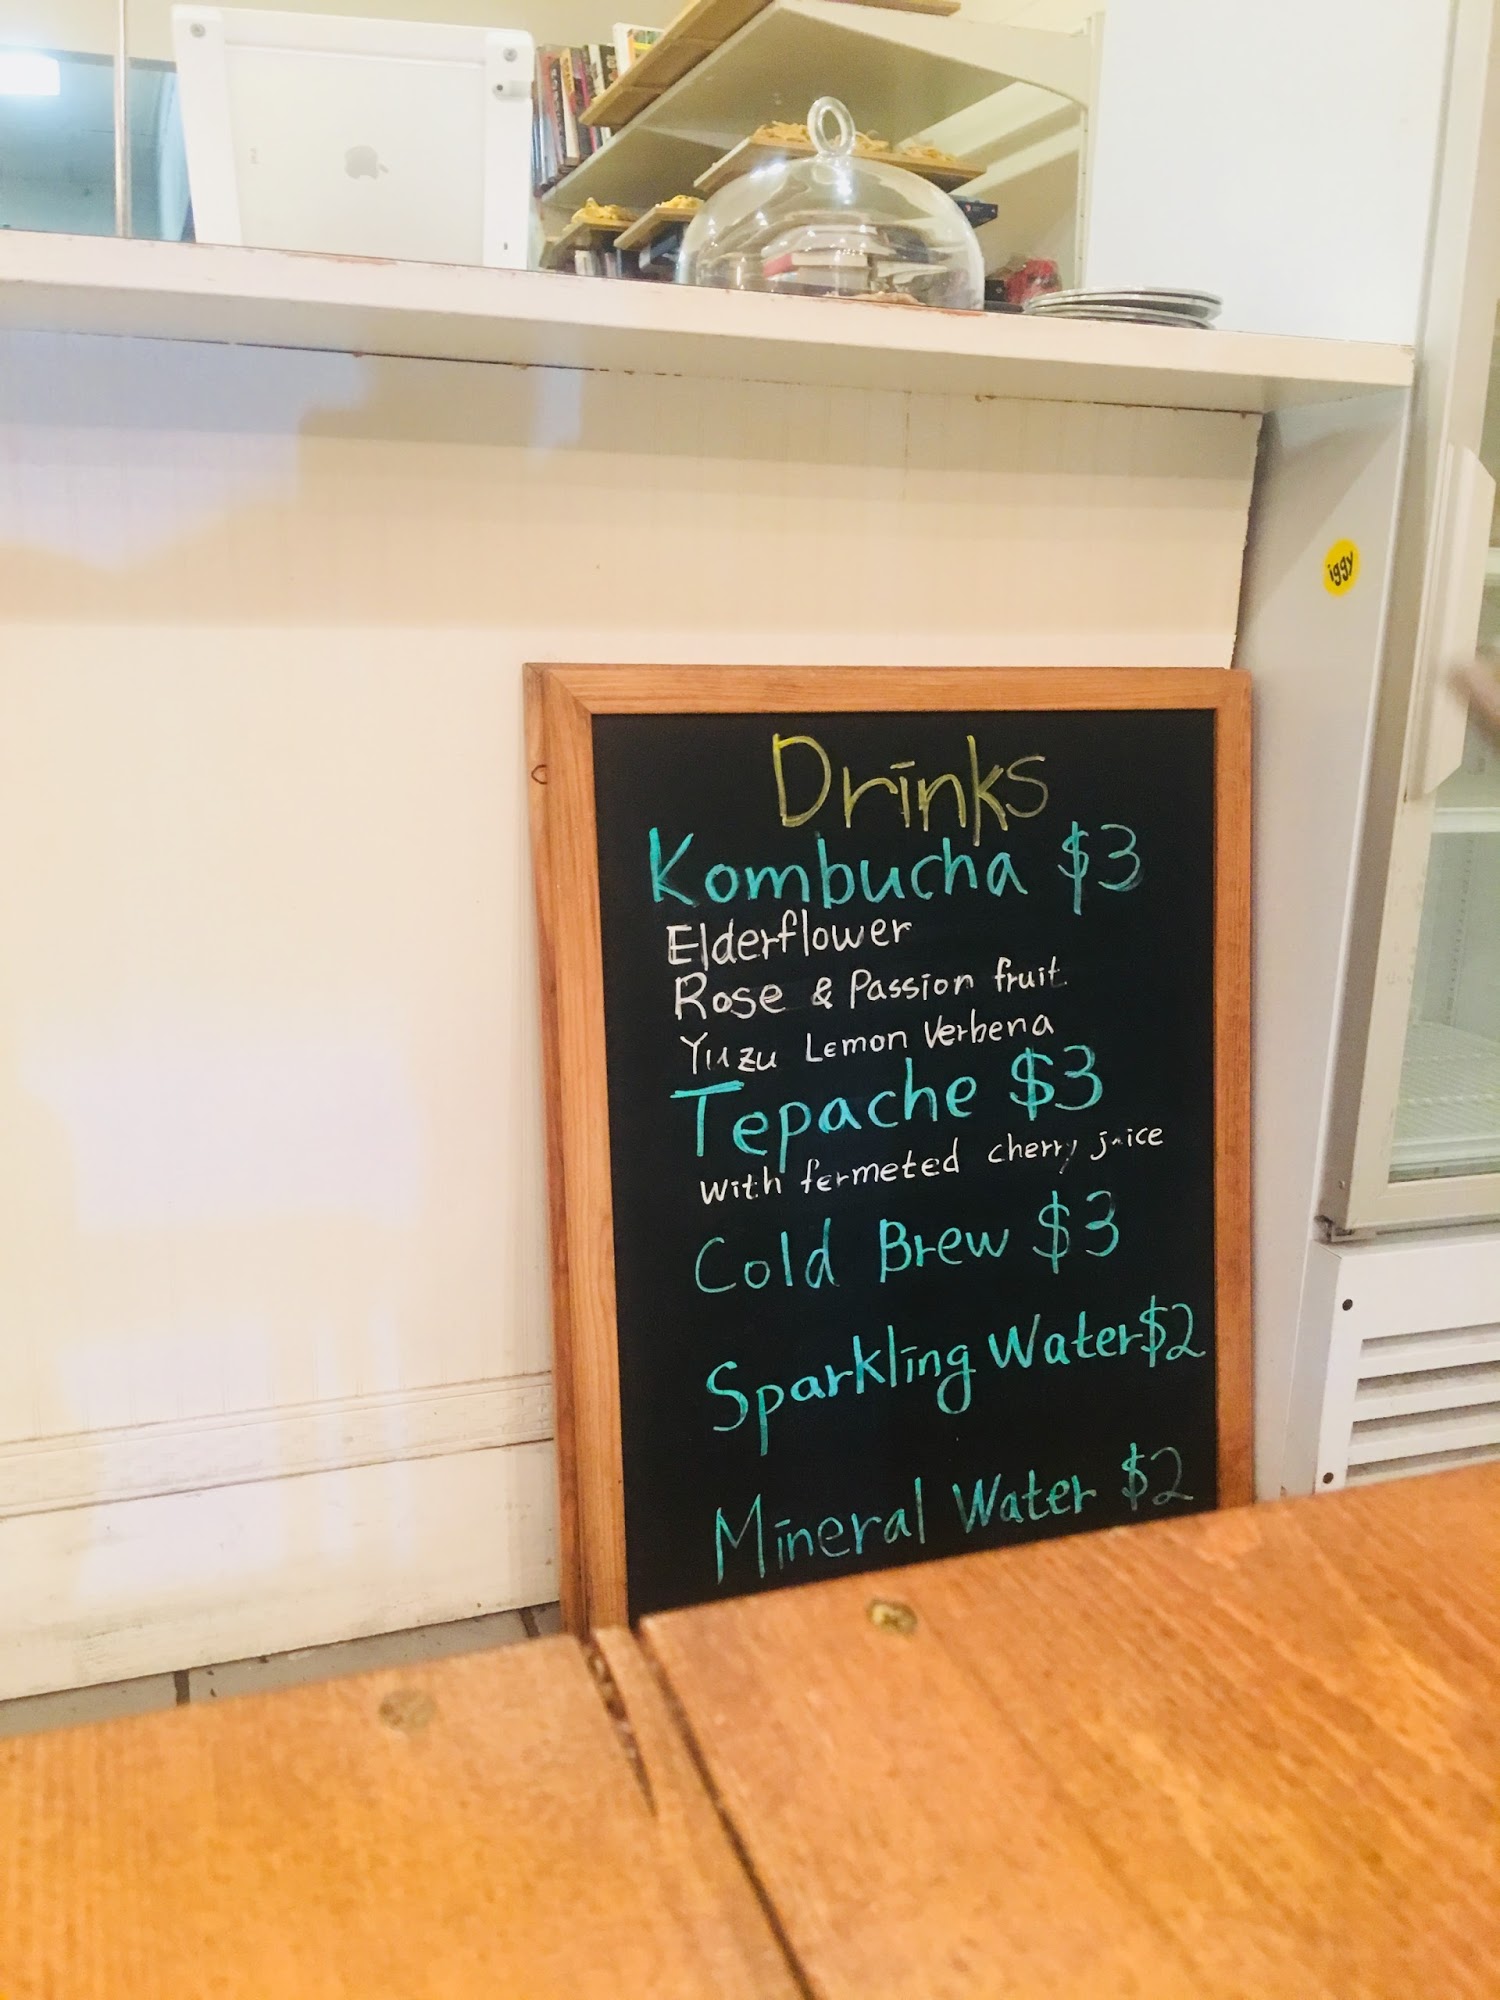 iggy
Drinks
Kombucha $3
Elderflower
Rose & Passion fruit
Yuzu Lemon Verbena
Tepache $3
with fermeted cherry juice
Cold Brew $3
Sparkling Water $2
Mineral Water $2